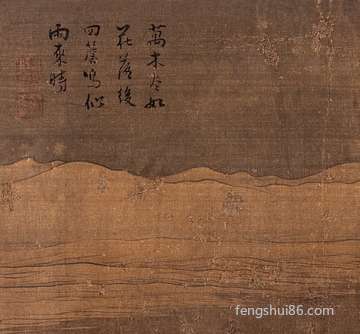 萬木冬如
花落後
四簷鳴似
雨來時
fengshui86.com